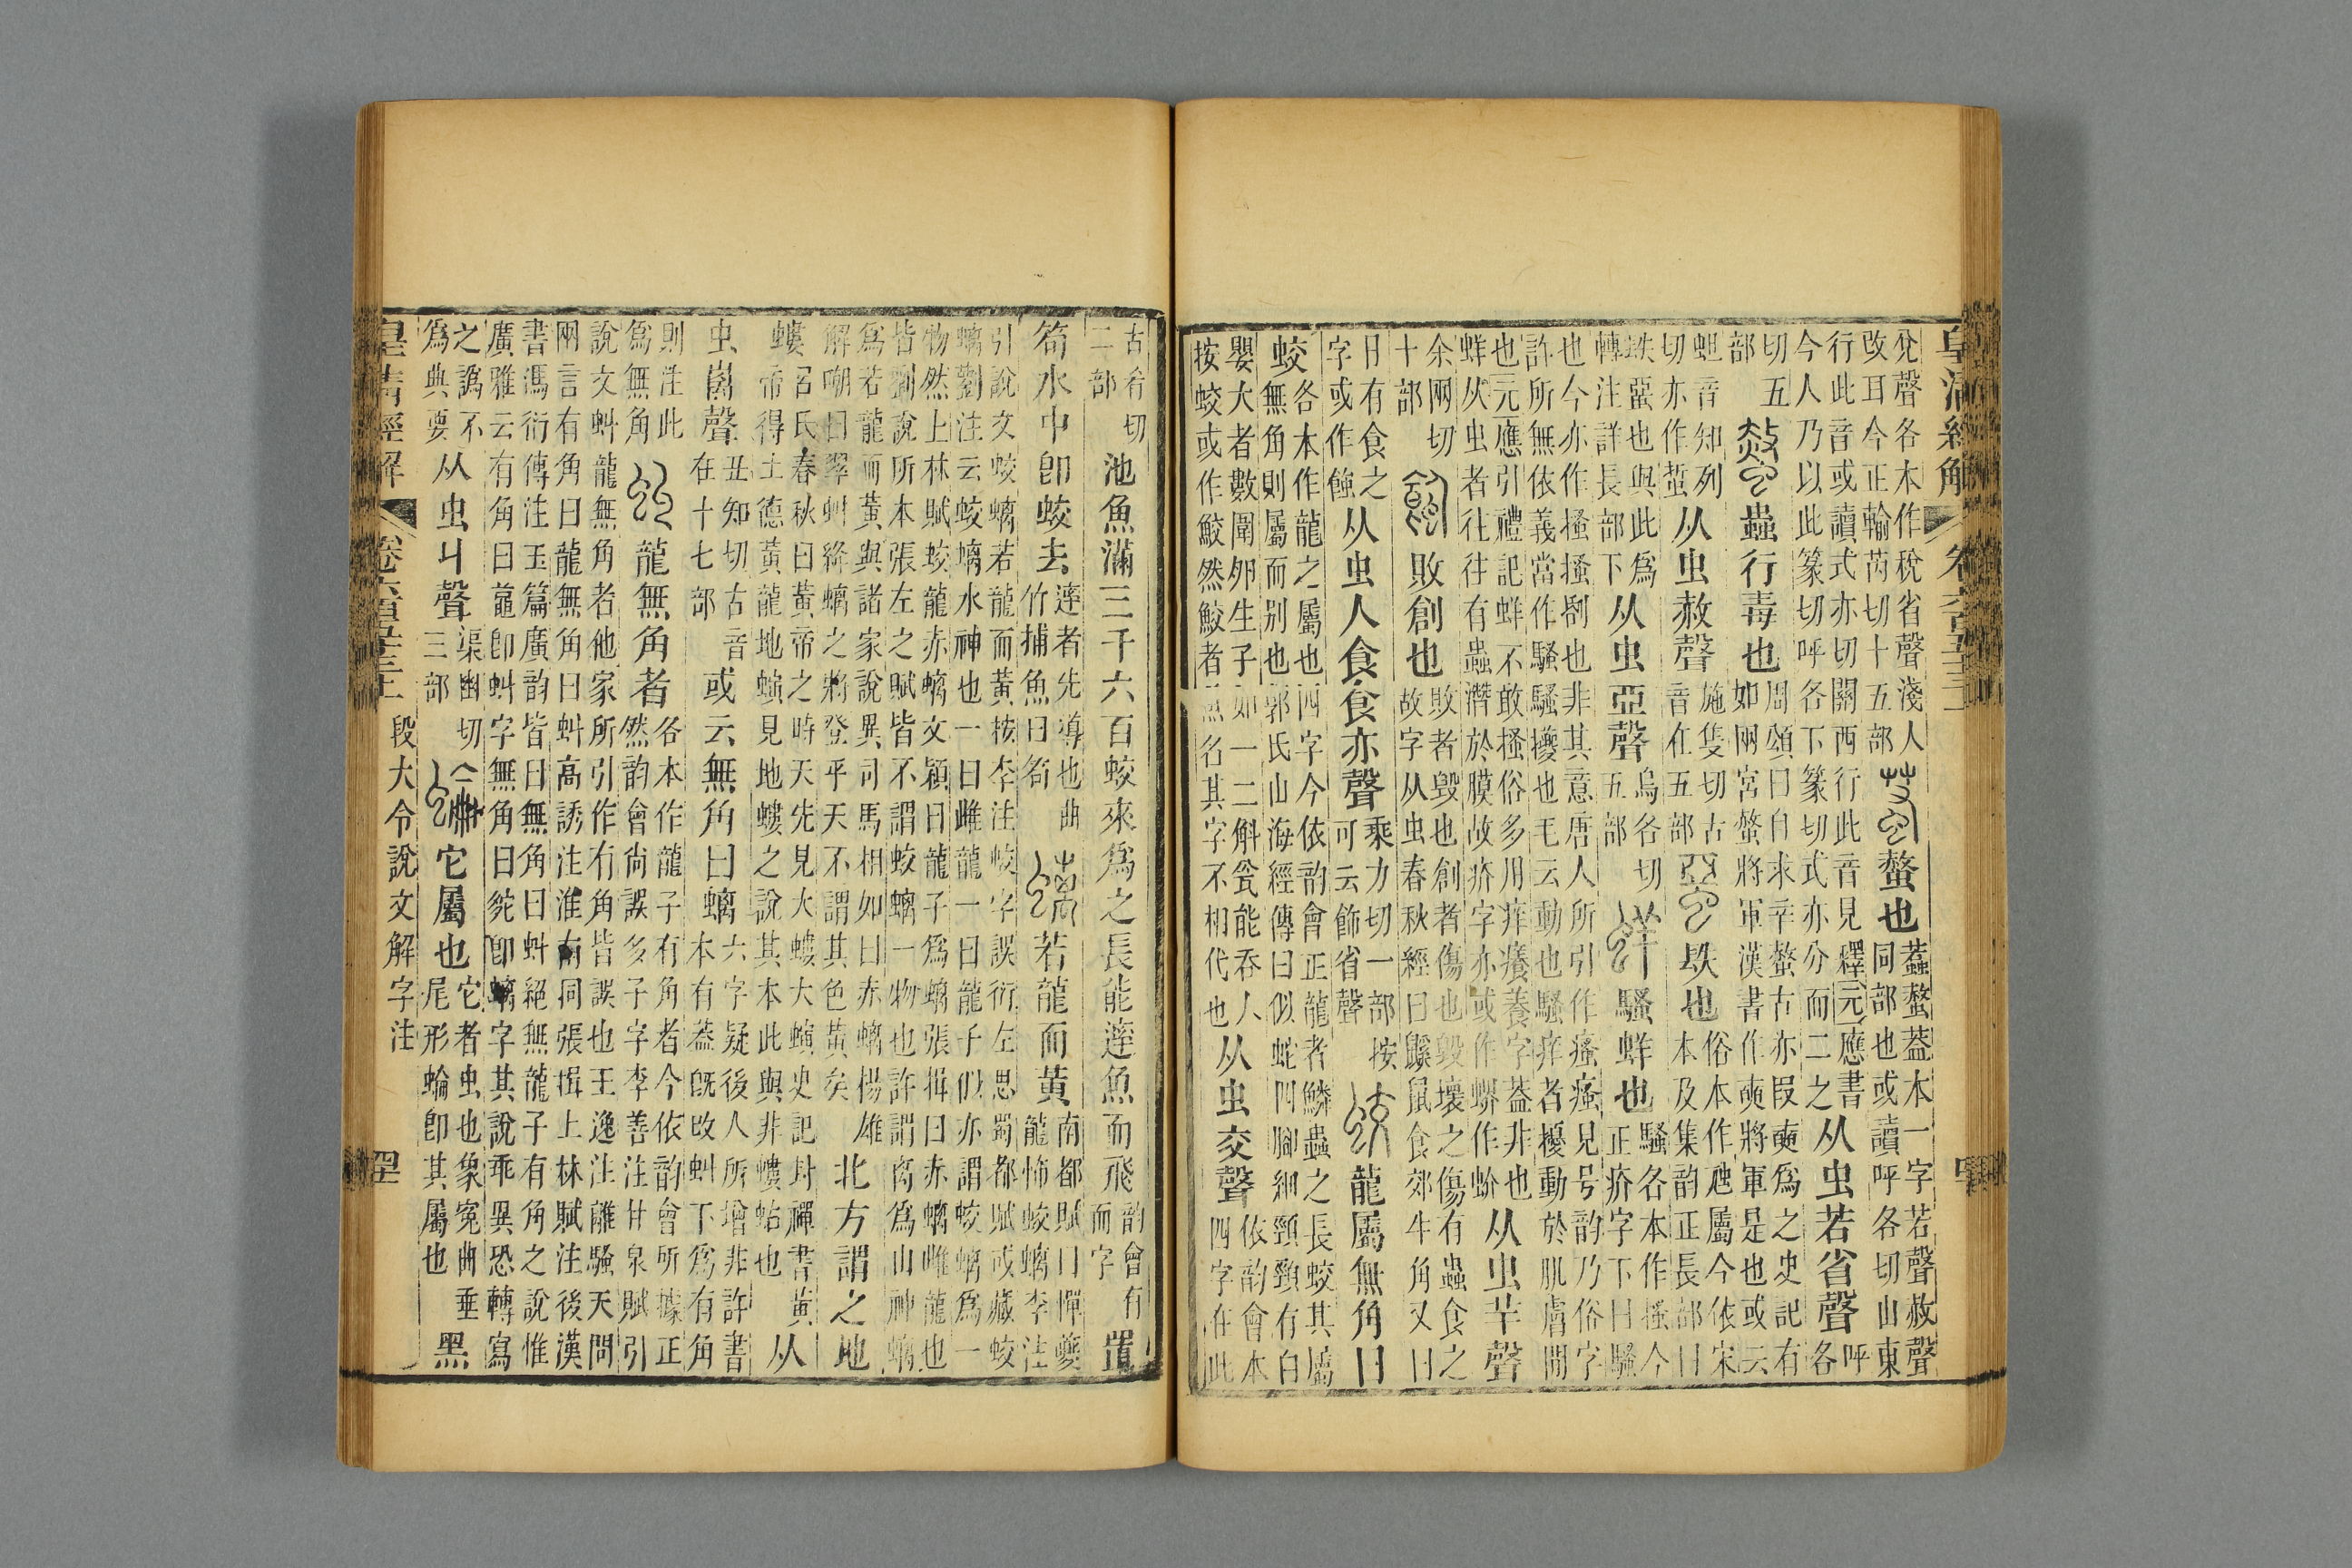 皇清經解 卷六百五十三上
兌聲各本作稅省聲淺人
改耳今正輸芮切十五部
螫也
蠚螫葢本一字若聲赦聲
同部也或讀呼各切山東
行此音或讀式亦切關西行此音見釋元應書
今人乃以此篆切呼各下篆切式亦分而二之
从虫若省聲
呼各
切五
部
蟲行毒也
周頌曰自求辛螫古亦叚奭爲之史記有
如兩宮螫將軍漢書作奭將軍是也或云
蛆音知列
切亦作蜇
从虫赦聲
施隻切古
音在五部
镻也
俗本作虺屬今依宋
本及集韵正長部曰
镻蝁也與此爲
轉注詳長部下
从虫亞聲
烏各切
五部
騷蛘也
騷各本作搔今
正疥字下曰騷
也今亦作搔搔劀也非其意唐人所引作瘙瘙見号韵乃俗字
許所無依義當作騷騷擾也毛云動也騷痒者擾動於肌膚間
也元應引禮記蛘不敢搔俗多用痒癢養字葢非也
蛘从虫者往往有蟲潛於膜故疥字亦或作蠏作蚧
从虫芉聲
余兩切
十部
敗創也
敗者毀也創者傷也毀壞之傷有蟲食之
故字从虫春秋經曰鼷鼠食郊牛角又曰
日有食之
字或作蝕
从虫人食食亦聲
乘力切一部按
可云飾省聲
龍屬無角曰
蛟
各本作龍之屬也四字今依韵會正龍者鱗蟲之長蛟其屬
無角則屬而别也郭氏山海經傳曰似蛇四腳細頸頸有白
嬰大者數圍卵生子如一二斛瓮能吞人
按蛟或作鮫然鮫者魚名其字不相代也
从虫交聲
依韵會本
四字在此
古肴切
二部
池魚滿三千六百蛟來爲之長能逹魚而飛
韵會有
而字
置
笱水中卽蛟去
逹者先導也曲
竹捕魚曰笱
若龍而黃
南都賦曰憚夔
龍怖蛟螭李注
引說文蛟螭若龍而黃按李注蛟字誤衍左思蜀都賦或藏蛟
螭劉注云蛟螭水神也一曰雌龍一曰龍子似亦謂蛟螭爲一
物然上林賦蛟龍赤螭文穎曰龍子爲螭張揖曰赤螭雌龍也
皆劉說所本張左之賦皆不謂蛟螭一物也許謂离爲山神螭
爲若龍而黃與諸家說異司馬相如曰赤螭楊雄
解嘲曰翠虯絳螭之將登乎天不謂其色黃矣
北方謂之地
螻
呂氏春秋曰黃帝之時天先見大螻大螾史記封禪書黃
帝得土德黃龍地螾見地螻之說其本此與非螻蛄也
从
虫离聲
丑知切古音
在十七部
或云無角曰螭
六字疑後人所增非許書
本有葢旣改虯下爲有角
則注此
爲無角
龍無角者
各本作龍子有角者今依韵會所據正
然韵會尚誤多子字李善注甘泉賦引
說文虯龍無角者他家所引作有角皆誤也王逸注離騷天問
兩言有角曰龍無角曰虯高誘注淮南同張揖上林賦注後漢
書馮衍傳注玉篇廣韵皆曰無角曰虯絕無龍子有角之說惟
廣雅云有角曰卽虯字無角曰卽螭字其說乖異恐轉寫
之譌不
爲典要
从虫丩聲
渠幽切
三部
它屬也
它者虫也象冤曲垂
尾形蜦卽其屬也
黑
皇清經解 卷六百五十三上 段大令說文解字注